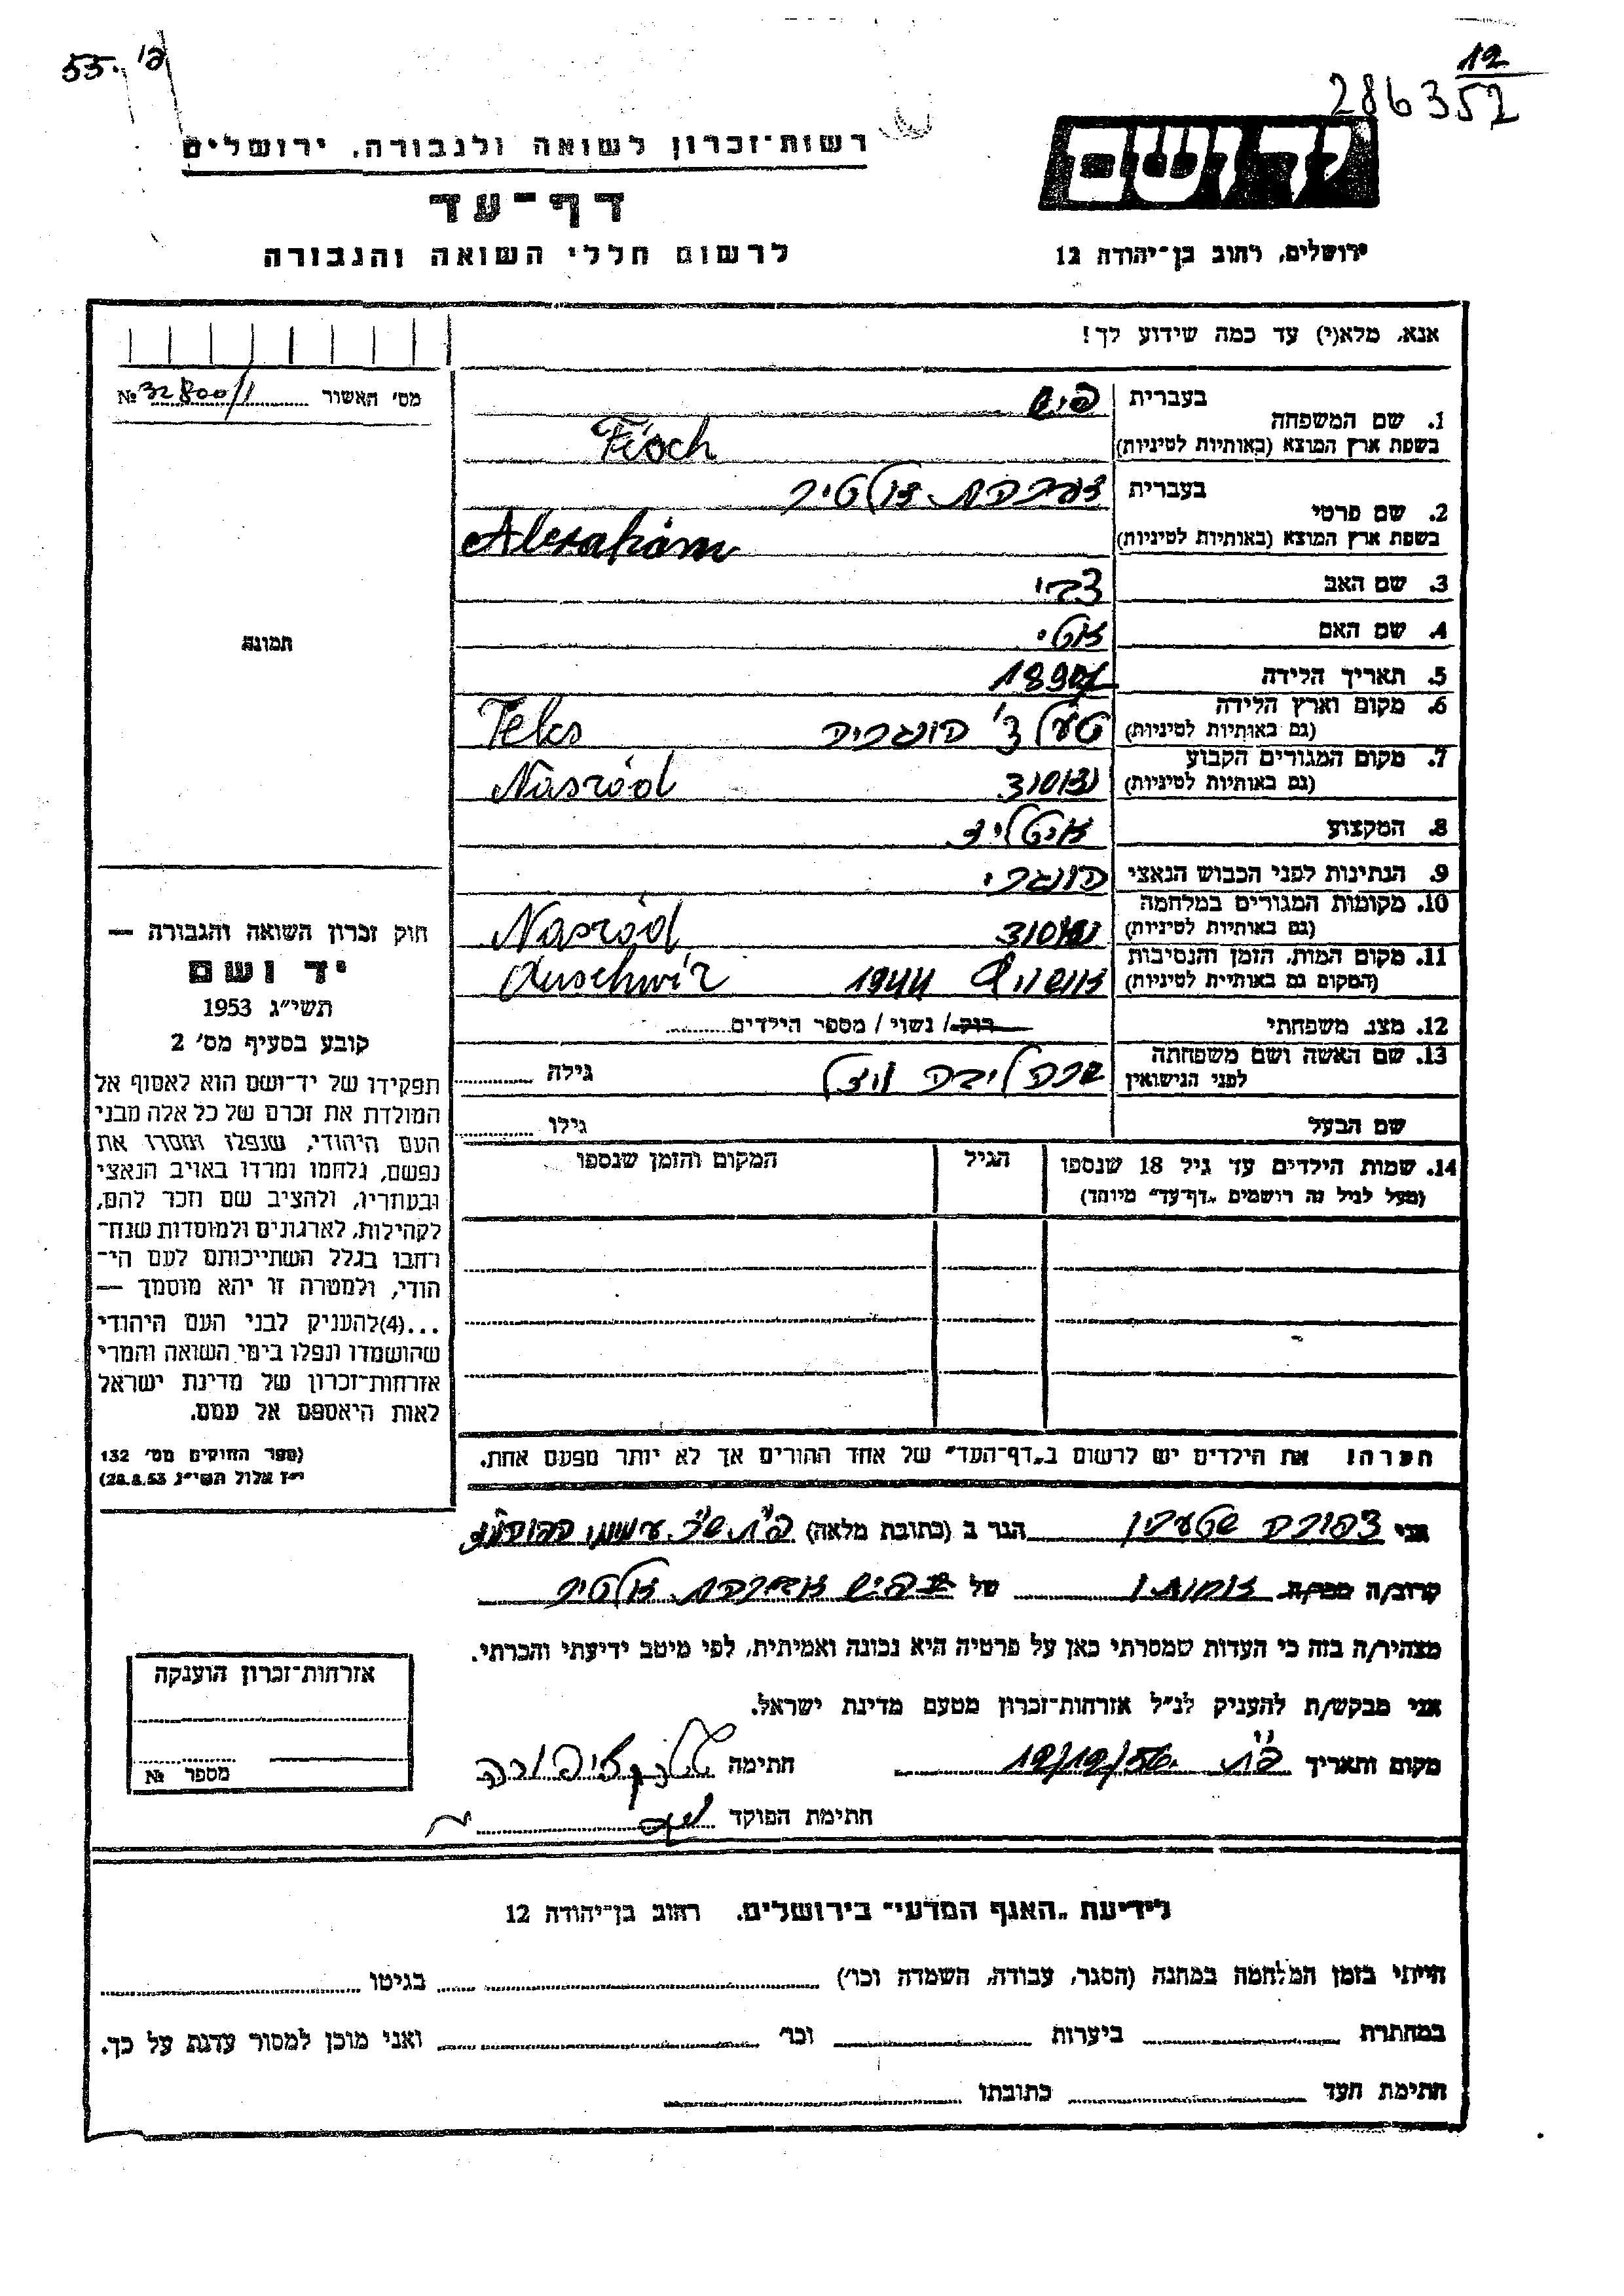 55. פ'
12
286352
רשות־זכרון לשואה ולגבורה, ירושלים
יד ושם
דף־עד
לרשום חללי השואה והגבורה
ירושלים, רחוב בן־יהודה 12
אנא, מלא(י) עד כמה שידוע לך!
מס' האשור № 32800/1
1. שם המשפחה
בעברית פיש
בשפת ארץ המוצא (באותיות לטיניות) Fisch
2. שם פרטי
בעברית אברהם אלטיר
בשפת ארץ המוצא (באותיות לטיניות) Abrahám
3. שם האב צבי
4. שם האם אטי
5. תאריך הלידה
6. מקום וארץ הלידה
(גם באותיות לטיניות) הונגריה Telcs
7. מקום המגורים הקבוע
(גם באותיות לטיניות) נאסוד Naszód
8. המקצוע
9. הנתינות לפני הכבוש הנאצי הונגרי
10. מקומות המגורים במלחמה
(גם באותיות לטיניות) נאסוד Naszód
11. מקום המות, הזמן והנסיבות
(המקום גם באותיות לטיניות) אושוויץ 1944 Auschwitz
12. מצב משפחתי רוק / נשוי / מספר הילדים
13. שם האשה ושם משפחתה
לפני הנישואין שרה ליבה גילה
שם הבעל גילו
14. שמות הילדים עד גיל 18 שנספו הגיל המקום והזמן שנספו
(מעל לגיל זה רושמים „דף־עד" מיוחד)
תמונה
חוק זכרון השואה והגבורה —
יד ושם
תשי״ג 1953
קובע בסעיף מס' 2
תפקידו של יד־ושם הוא לאסוף אל
המולדת את זכרם של כל אלה מבני
העם היהודי, שנפלו ומסרו את
נפשם, נלחמו ומרדו באויב הנאצי
ובעוזריו, ולהציב שם וזכר להם,
לקהילות, לארגונים ולמוסדות שנח־
רבו בגלל השתייכותם לעם הי־
הודי, ולמטרה זו יהא מוסמך —
...(4) להעניק לבני העם היהודי
שהושמדו ונפלו בימי השואה והמרי
אזרחות־זכרון של מדינת ישראל
לאות היאספם אל עמם.
(ספר החוקים מס' 132
י״ז אלול תשי״ג 28.8.53)
הערה! את הילדים יש לרשום ב„דף־העד" של אחד ההורים אך לא יותר מפעם אחת.
אני צפורה שטערן הגר ב (כתובת מלאה) פ״ת
קרוב/ה מכר/ה אחותו של פיש אברהם אלטיר
מצהיר/ה בזה כי העדות שמסרתי כאן על פרטיה היא נכונה ואמיתית, לפי מיטב ידיעתי והכרתי.
אני מבקש/ת להעניק לנ״ל אזרחות־זכרון מטעם מדינת ישראל.
מקום ותאריך פ״ת 12/12/56 חתימה שטרן ציפורה
חתימת הפוקד
אזרחות־זכרון הוענקה
מספר №
לידיעת „האגף המדעי" בירושלים, רחוב בן־יהודה 12
הייתי בזמן המלחמה במחנה (הסגר, עבודה, השמדה וכו') בגיטו
במחתרת ביערות וכו' ואני מוכן למסור עדות על כך.
חתימת העד כתובתו